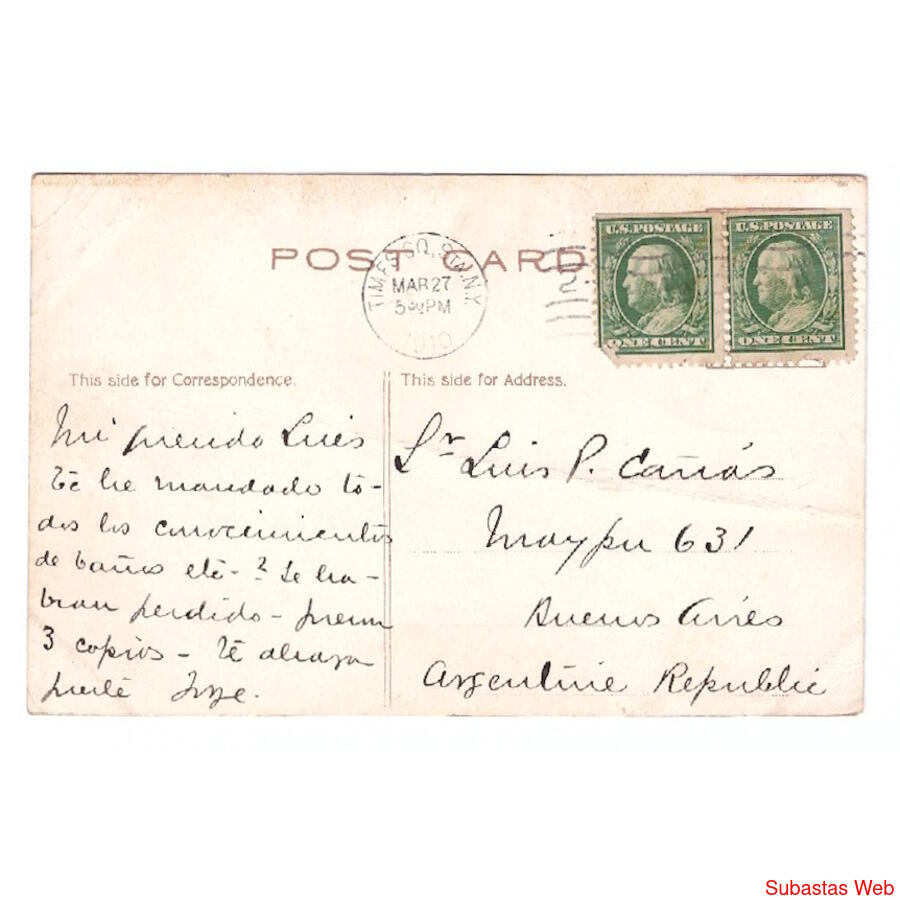 POST CARD
TIMES SQ. STA. N.Y.
MAR 27
5 30 PM
1910
U.S. POSTAGE
ONE CENT
U.S. POSTAGE
ONE CENT
This side for Correspondence.
Mi querido Luis
Te he mandado to-
dos los conocimientos
de baños etc-? Se ha-
bran perdido - fueron
3 copias - Te abraza
fuerte Jorge.
This side for Address.
Sr Luis P. Cañás
Maypu 631
Buenos Aires
Argentine Republic
Subastas Web